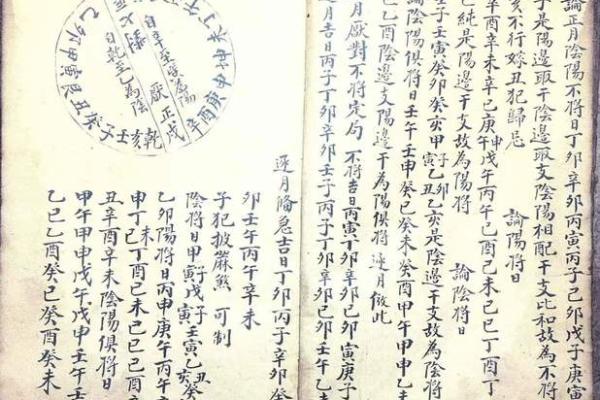 論正月陰陽不將日丁卯辛卯丙寅丙子己卯戊子庚寅
子是陽邊取干陰邊取支陰陽相配干支比和故為不將
亥不行嫁丑犯歸忌 論陽將日
辛酉辛未辛巳庚申戊午丙午己酉己未己巳丁酉丁
巳純是陽邊干支故為陽將 論陰將日
壬子壬寅癸卯癸亥甲子甲寅乙卯乙丑乙亥是陰邊干支故為陰將
論陰陽俱將日壬午壬申癸巳癸未癸酉甲午甲申
乙巳乙酉陰邊支陽邊干為陽俱將 逐月倣此
月厭對不將定局 不將吉日丙寅丁卯辛卯己卯寅庚子
逐月吉日丙子丁卯辛卯壬子丙子丁卯辛卯己卯壬午乙
辛酉庚申坤未丁午
自辛至巽為陽
厭正戌
自乾至乙為陰
乙卯甲寅艮丑癸子壬亥乾
逐月陰急吉日丁卯丙子辛卯癸
卯壬午丙午辛未
子犯披麻煞 可制
陰將日甲寅戊子壬寅乙丑乙亥癸
乙卯陽將日丙申庚午丙午
申丁巳丁未丁酉己未己巳己
丑辛酉辛未陰陽俱將日
甲午甲申戊午戊申壬午壬
乙巳乙酉癸巳癸酉癸未